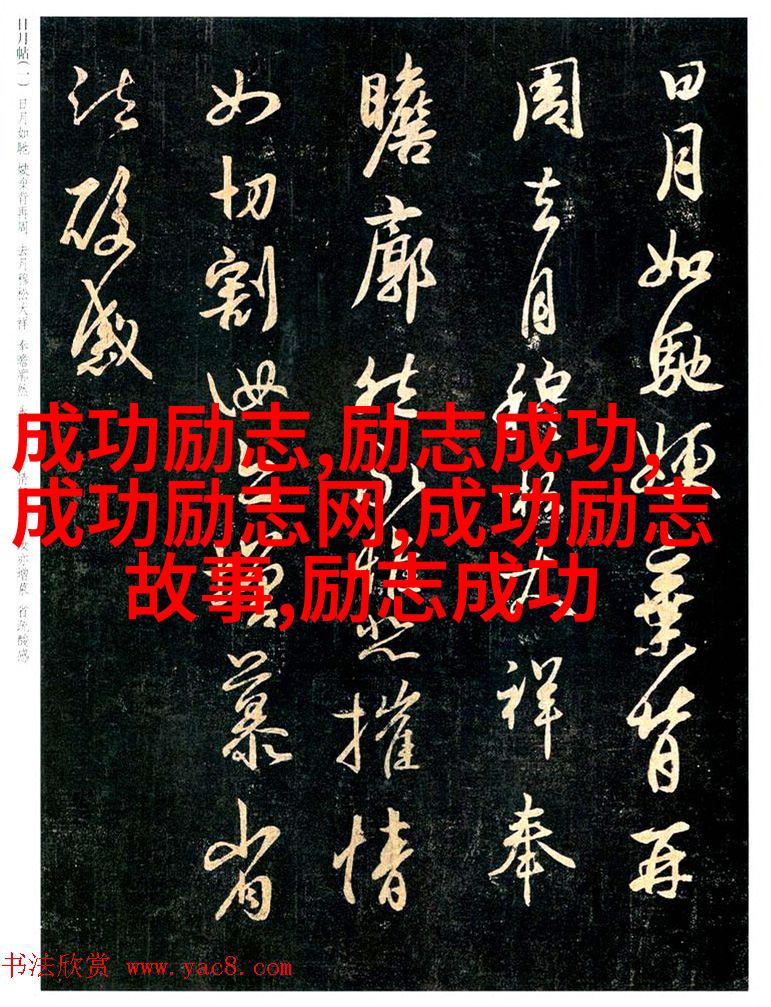 日月如馳嫂棄背再
周去月穆松大祥奉
瞻廓然永惟悲摧情
如切割汝亦增慕省
疏酸感
日月帖(一) 日月如馳 嫂棄背再周 去月穆松大祥 奉瞻廓然 亦增慕 省疏酸感
成功励志,励志成功,
成功励志网,成功励志
故事,励志成功
书法欣赏 www.yac8.com